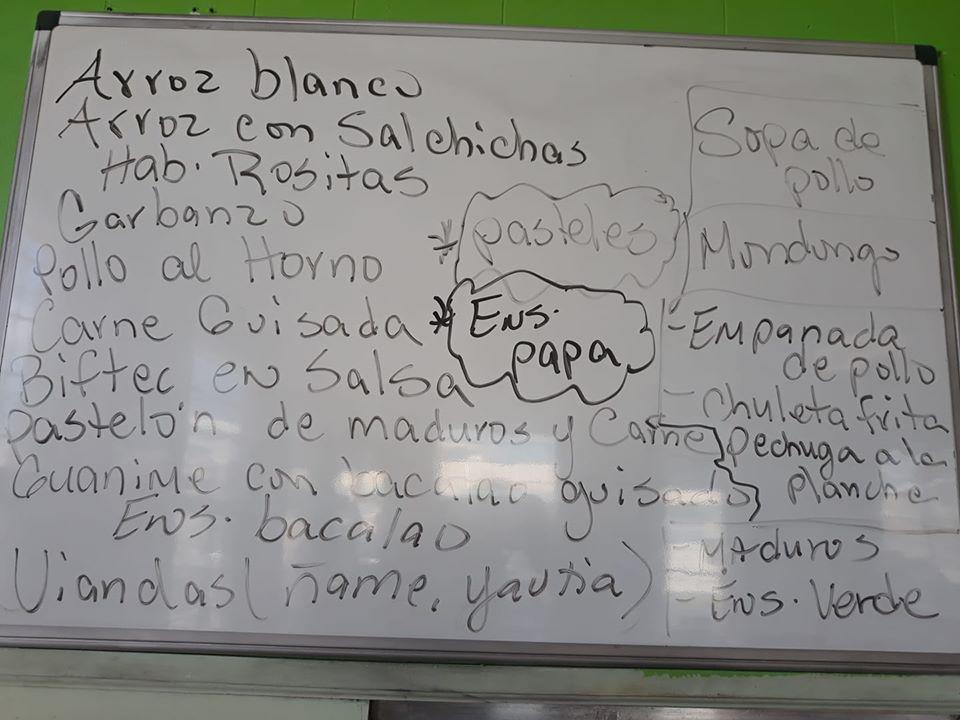 Arroz blanco
Arroz con Salchichas
Hab. Rositas
Garbanzo
Pollo al Horno
Carne Guisada
Biftec en Salsa
Pastelón de maduros y Carne
Guanime con bacalao guisado
Ens. bacalao
Viandas (ñame, yautia)
* pasteles
* Ens.
papa
Sopa de
pollo
Mondongo
- Empanada
de pollo
- Chuleta frita
Pechuga a la
Planche
- Maduros
- Ens. Verde